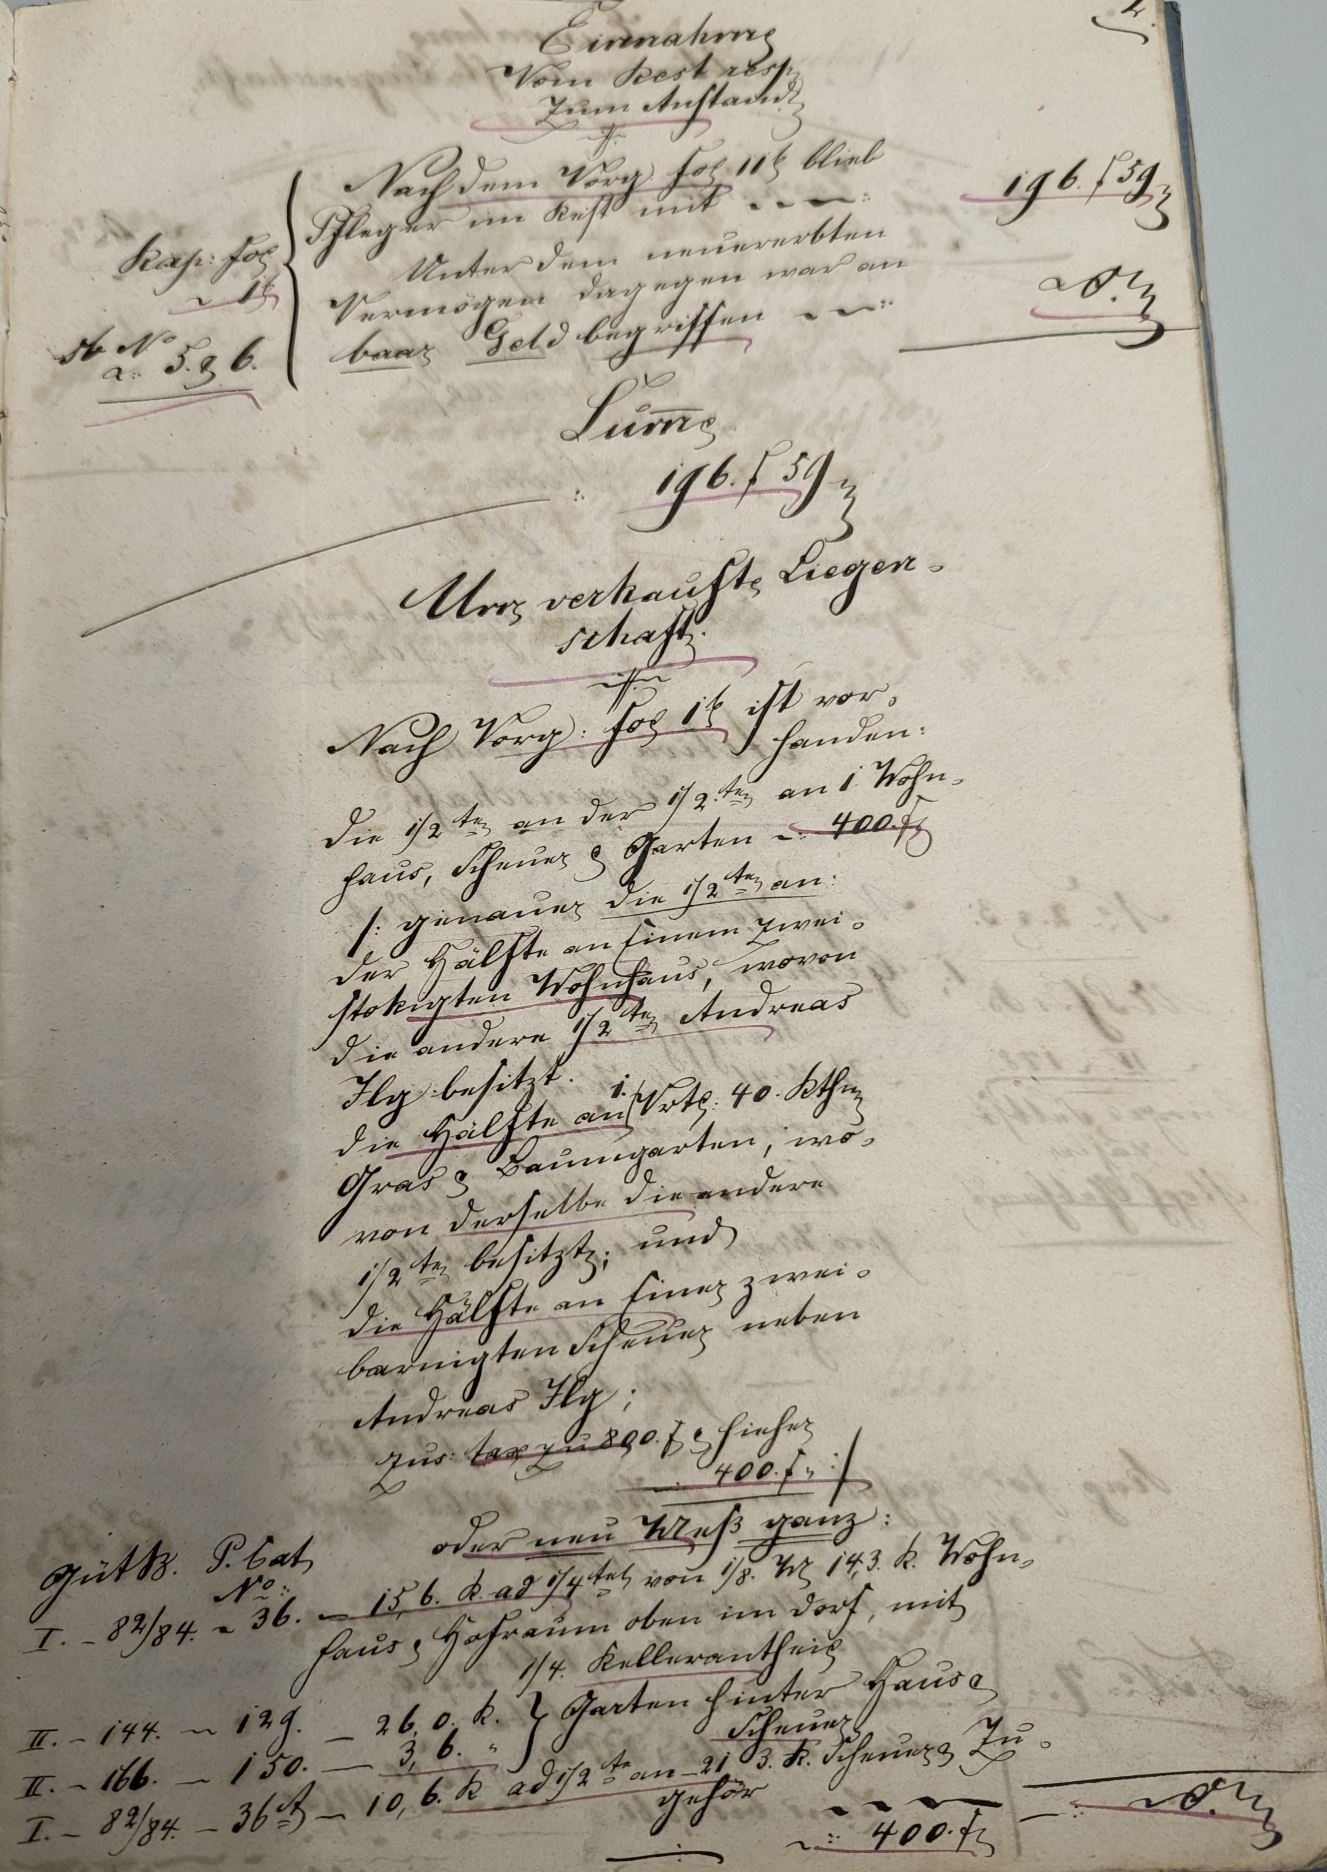 2.
Einnahme
Vom Rest resp.
Zum Anstand
Nach dem Vorg. Fol. 11b blieb
Pfleger im Rest mit 196. f 59
Kap: Fol.
1b
Unter dem neuererbten
Vermögen dagegen war an
Sb. No
5. & 6.
baar Geld begriffen 0.
Summe
196. f 59
Unverkaufte Liegen-
schaft.
Nach Vorg: Fol. 1b ist vor-
handen:
die 1/2te an der 1/2te an 1 Wohn-
haus, Scheuer & Garten 400. f
/: genauer die 1/2te an:
der Hälfte an Einem zwei-
stokigten Wohnhaus, wovon
die andere 1/2te Andreas
Ilg besitzt.
die Hälfte an 1. Vrtl. 40. Rthn
Gras & Baumgarten, wo-
von derselbe die andere
1/2te besitzt; und
die Hälfte an Einer zwei-
barnigten Scheuer neben
Andreas Ilg;
zus: tax zu 800. f & hieher
400. f :/
oder neu Meß ganz:
Güterb. P. Cat.
No.
I. - 82/84. - 36. - 15,6. R. ad 1/4tel von 1/8. M 14,3. R. Wohn-
haus & Hofraum oben im Dorf, mit
1/4. Kellerantheil
II. - 144. - 129. - 26,0. R. } Garten hinter Haus &
II. - 166. - 150. - 3,6. " Scheuer
I. - 82/84. - 36A - 10,6. R ad 1/2te an - 21,3. R. Scheuer & Zu-
gehör
400. f 0.